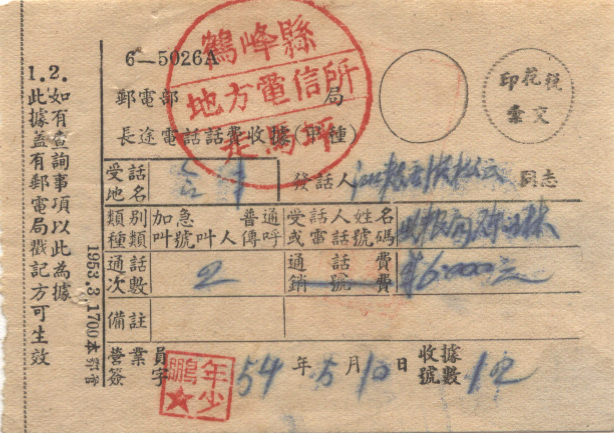 鶴峰縣
地方電信所
走馬坪
6—5026A
郵電部 局
長途電話話費收據(甲種)
印花稅
彙交
受話地名
發話人 同志
類別種類
加急 普通
叫號 叫人 傳呼
受話人姓名或電話號碼
通話次數 2
通話費
銷號費
$6.000元
備註
營業員簽字
年少鵬
54年5月10日
收據號數 12
1.此據蓋有郵電局戳記方可生效
2.如有查詢事項以此為據
1953.3.1700本